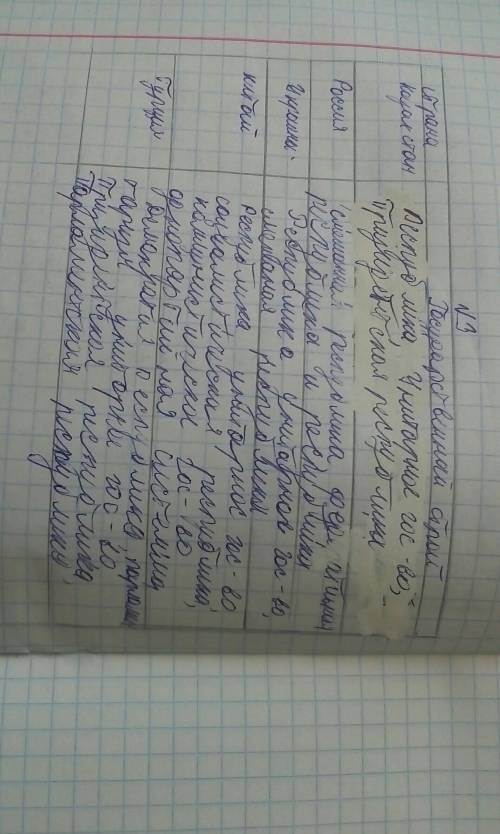 №3
Государственный строй
страна
казахстан
Республика Унитарное гос-во,
Президентская республика
Россия
смешанная республика
республика и республики
Украина
Республика унитарное гос-во,
смешаная республики
китай
республика унитарное гос-во
социалистическая республика,
коммунистически гос-во
однопартийная система
Турция
республика,
унитарный гос-во
Президентская республика,
Парламентская республика,